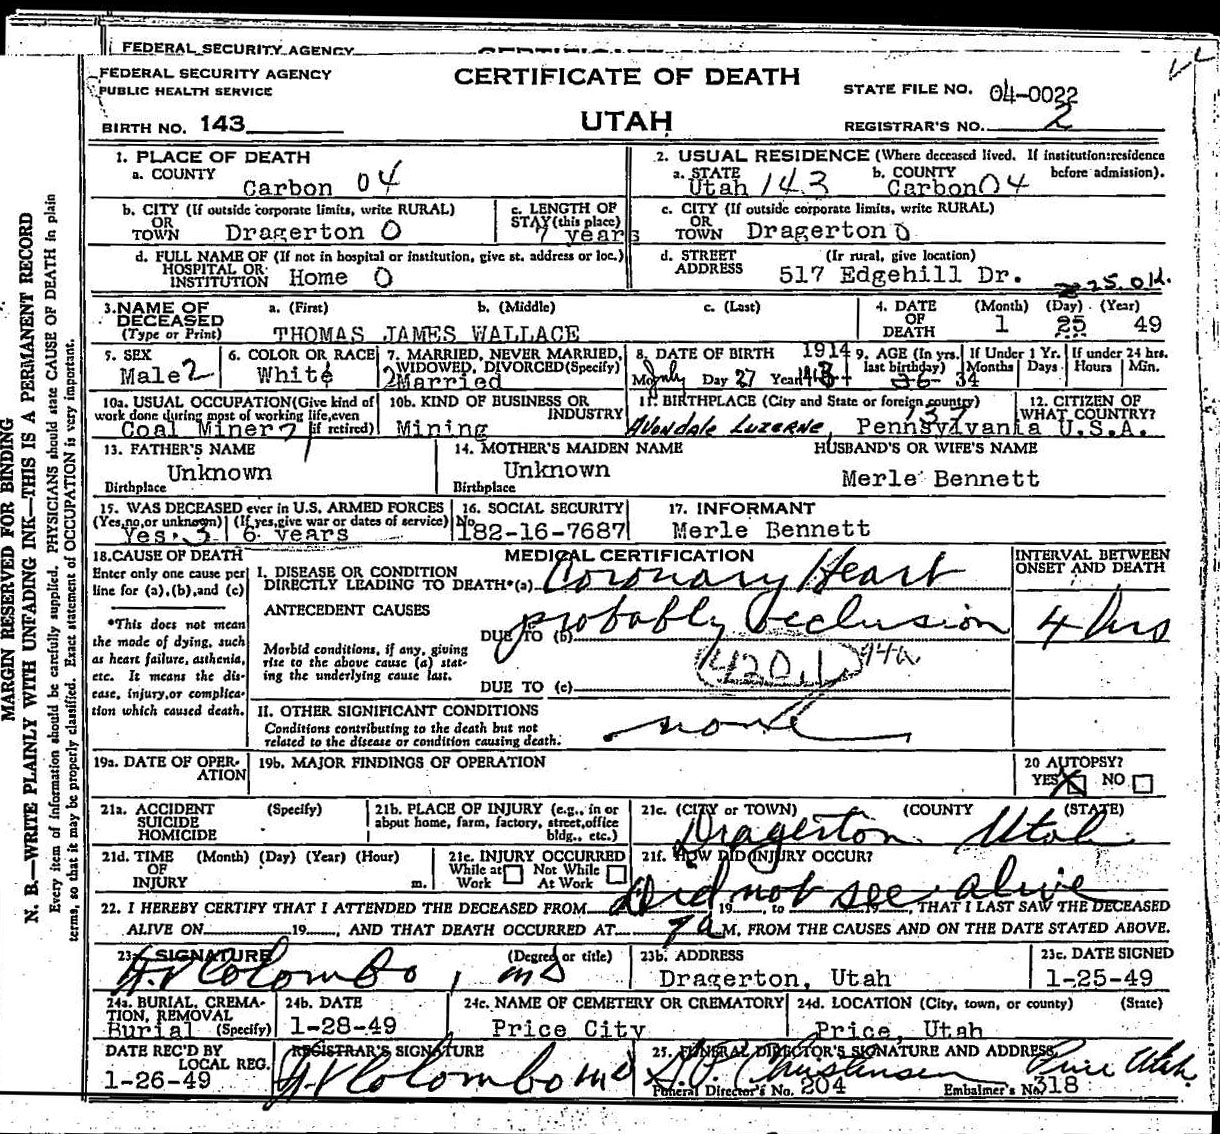 FEDERAL SECURITY AGENCY
FEDERAL SECURITY AGENCY
PUBLIC HEALTH SERVICE
CERTIFICATE OF DEATH
STATE FILE NO. 04-0022
BIRTH NO. 143
UTAH
REGISTRAR'S NO. 2
1. PLACE OF DEATH
a. COUNTY
Carbon 04
2. USUAL RESIDENCE (Where deceased lived. If institution:residence
a. STATE b. COUNTY before admission).
Utah 143 Carbon 04
b. CITY (If outside corporate limits, write RURAL)
OR
TOWN Dragerton 0
c. LENGTH OF
STAY (this place)
7 years
c. CITY (If outside corporate limits, write RURAL)
OR
TOWN Dragerton 0
d. FULL NAME OF (If not in hospital or institution, give st. address or loc.)
HOSPITAL OR
INSTITUTION Home 0
d. STREET (If rural, give location)
ADDRESS 517 Edgehill Dr.
25. OK.
3. NAME OF a. (First) b. (Middle) c. (Last)
DECEASED
(Type or Print) THOMAS JAMES WALLACE
4. DATE (Month) (Day) (Year)
OF
DEATH 1 25 49
5. SEX
Male 2
6. COLOR OR RACE
White
7. MARRIED, NEVER MARRIED,
WIDOWED, DIVORCED(Specify)
2 Married
8. DATE OF BIRTH 1914
Mo July Day 27 Year
9. AGE (In yrs.
last birthday)
36 34
If Under 1 Yr.
Months Days
If under 24 hrs.
Hours Min.
10a. USUAL OCCUPATION(Give kind of
work done during most of working life, even
Coal Miner if retired)
10b. KIND OF BUSINESS OR
INDUSTRY
Mining
11. BIRTHPLACE (City and State or foreign country)
137
Avondale Luzerne, Pennsylvania
12. CITIZEN OF
WHAT COUNTRY?
U.S.A.
13. FATHER'S NAME
Unknown
Birthplace
14. MOTHER'S MAIDEN NAME
Unknown
Birthplace
HUSBAND'S OR WIFE'S NAME
Merle Bennett
15. WAS DECEASED ever in U.S. ARMED FORCES
(Yes, no, or unknown) (If yes, give war or dates of service)
Yes. 3 6 years
16. SOCIAL SECURITY
No.
182-16-7687
17. INFORMANT
Merle Bennett
18. CAUSE OF DEATH
Enter only one cause per
line for (a), (b), and (c)
*This does not mean
the mode of dying, such
as heart failure, asthenia,
etc. It means the dis-
ease, injury, or complica-
tion which caused death.
MEDICAL CERTIFICATION
I. DISEASE OR CONDITION
DIRECTLY LEADING TO DEATH*(a) Coronary Heart
ANTECEDENT CAUSES
DUE TO (b) probably occlusion
Morbid conditions, if any, giving
rise to the above cause (a) stat-
ing the underlying cause last.
420.1 94a
DUE TO (c)
II. OTHER SIGNIFICANT CONDITIONS
Conditions contributing to the death but not
related to the disease or condition causing death.
none
INTERVAL BETWEEN
ONSET AND DEATH
4 hrs
19a. DATE OF OPER-
ATION
19b. MAJOR FINDINGS OF OPERATION
20 AUTOPSY?
YES NO
21a. ACCIDENT (Specify)
SUICIDE
HOMICIDE
21b. PLACE OF INJURY (e.g., in or
about home, farm, factory, street, office
bldg., etc.)
21c. (CITY or TOWN) (COUNTY (STATE)
Dragerton Utah
21d. TIME (Month) (Day) (Year) (Hour)
OF
INJURY m.
21e. INJURY OCCURRED
While at Not While
Work At Work
21f. HOW DID INJURY OCCUR?
Did not see alive
22. I HEREBY CERTIFY THAT I ATTENDED THE DECEASED FROM 19 , to 19 , THAT I LAST SAW THE DECEASED
ALIVE ON 19 , AND THAT DEATH OCCURRED AT 7 a M, FROM THE CAUSES AND ON THE DATE STATED ABOVE.
23. SIGNATURE (Degree or title)
A. V. Colombo, MD
23b. ADDRESS
Dragerton, Utah
23c. DATE SIGNED
1-25-49
24a. BURIAL, CREMA-
TION, REMOVAL
Burial (Specify)
24b. DATE
1-28-49
24c. NAME OF CEMETERY OR CREMATORY
Price City
24d. LOCATION (City, town, or county) (State)
Price, Utah
DATE REC'D BY
LOCAL REG.
1-26-49
REGISTRAR'S SIGNATURE
Colombo MD
25. FUNERAL DIRECTOR'S SIGNATURE AND ADDRESS
Christensen Price Utah.
Funeral Director's No. 204 Embalmer's No. 318
MARGIN RESERVED FOR BINDING
N. B.—WRITE PLAINLY WITH UNFADING INK—THIS IS A PERMANENT RECORD
Every item of information should be carefully supplied. PHYSICIANS should state CAUSE OF DEATH in plain
terms, so that it may be properly classified. Exact statement of OCCUPATION is very important.